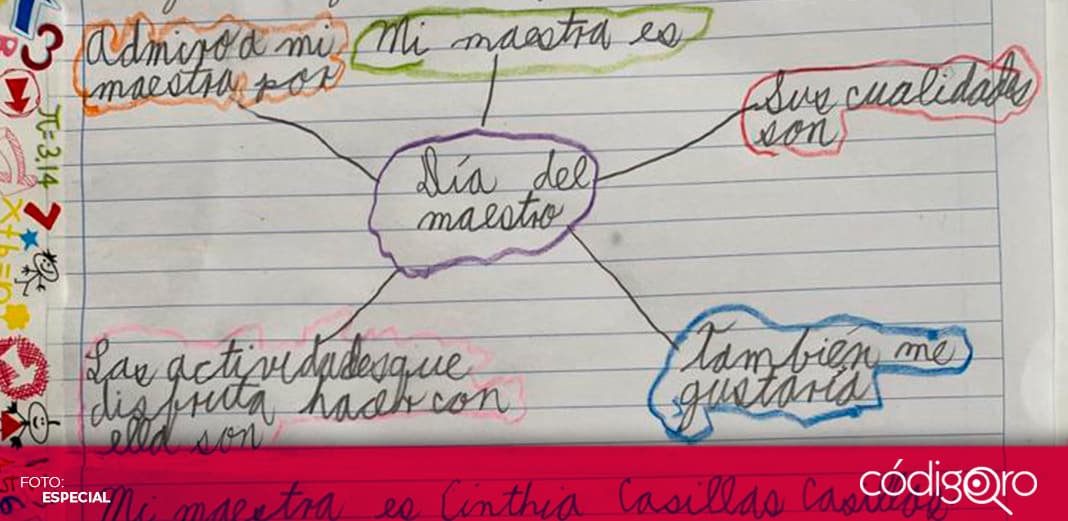 Admiro a mi
maestra por
Mi maestra es
Sus cualidades
son
Día del
maestro
Las actividades que
disfruta hacer con
ella son
También me
gustaría
Mi maestra es Cinthia Casillas Casillas
π=3.14
x+b=
FOTO:
ESPECIAL
códigoqro